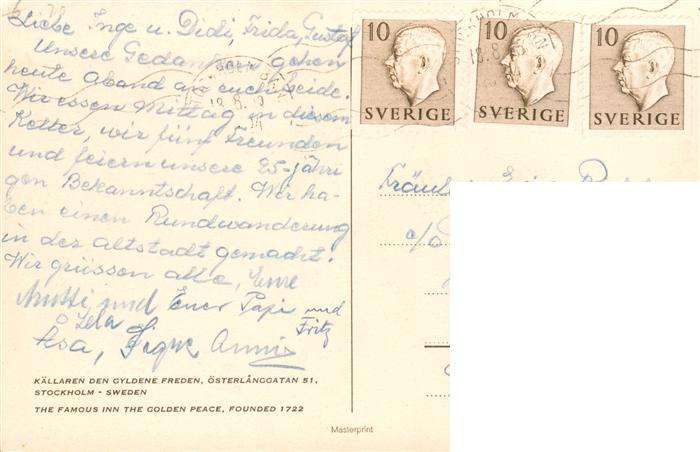 Liebe Inge u. Didi, Frida, Gustaf
Unsere Gedanken gehen
heute Abend an euch beide.
Wir essen Mittag in diesem
Keller, wir fünf Freunden
und feiern unsere 25-jähri
gen Bekanntschaft. Wir ha-
ben einen Rundwanderung
in der altstadt gemacht.
Wir grüssen alle, Eure
Mutti und Euer Papi und
Fritz
Åsa, Signe Annie
KÄLLAREN DEN GYLDENE FREDEN, ÖSTERLÅNGGATAN 51,
STOCKHOLM - SWEDEN
THE FAMOUS INN THE GOLDEN PEACE, FOUNDED 1722
Masterprint
10
SVERIGE
10
SVERIGE
10
SVERIGE
18.8
c/o